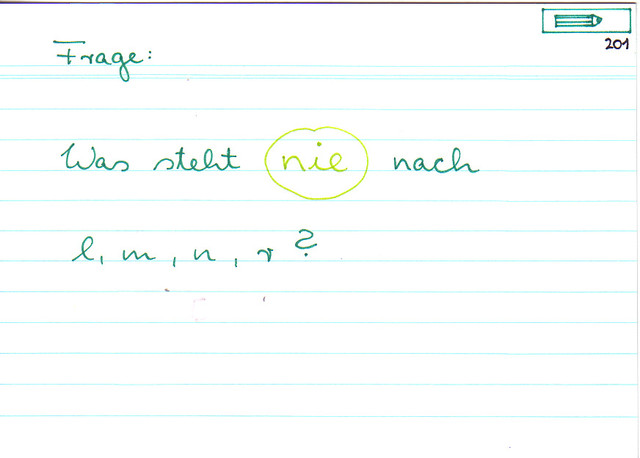 201
Frage:
Was steht nie nach
l, m, n, r?